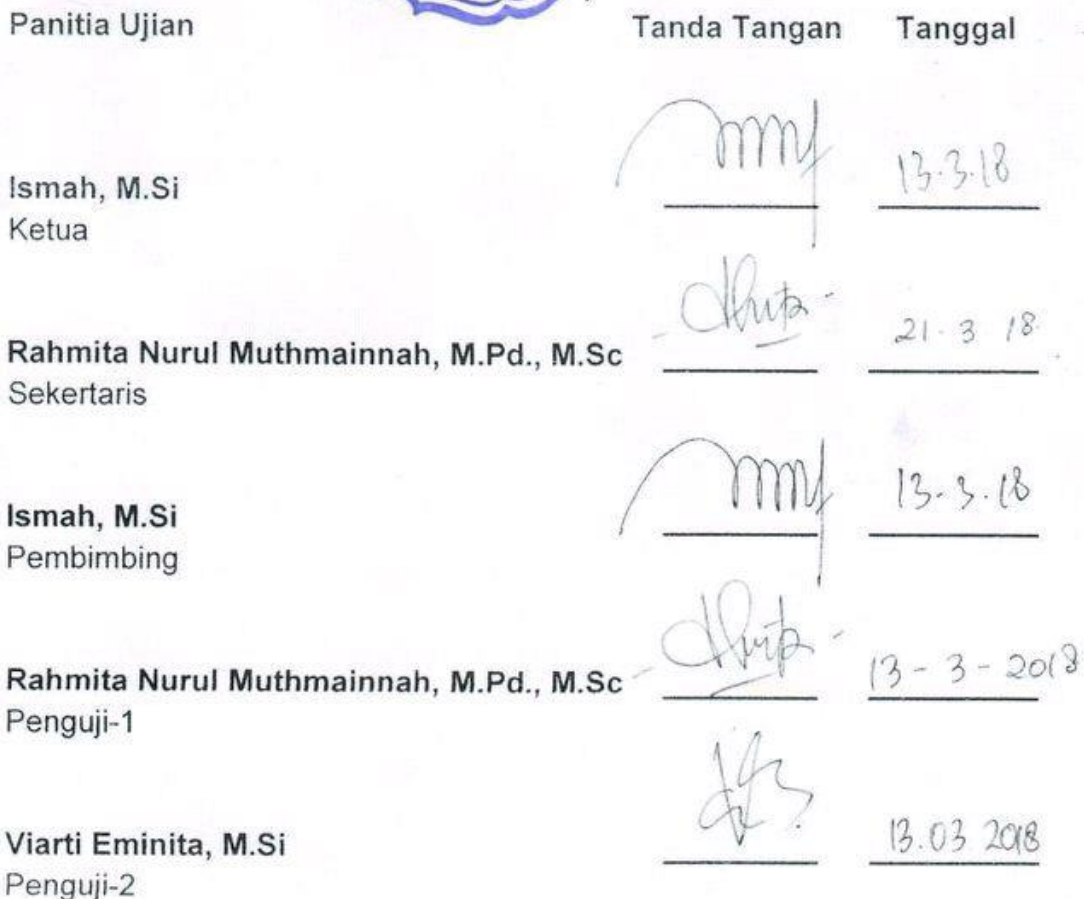 Panitia Ujian Tanda Tangan Tanggal
13.3.18
Ismah, M.Si
Ketua
21. 3 18
Rahmita Nurul Muthmainnah, M.Pd., M.Sc
Sekertaris
13.3.18
Ismah, M.Si
Pembimbing
13 - 3 - 2018
Rahmita Nurul Muthmainnah, M.Pd., M.Sc
Penguji-1
13.03 2018
Viarti Eminita, M.Si
Penguji-2